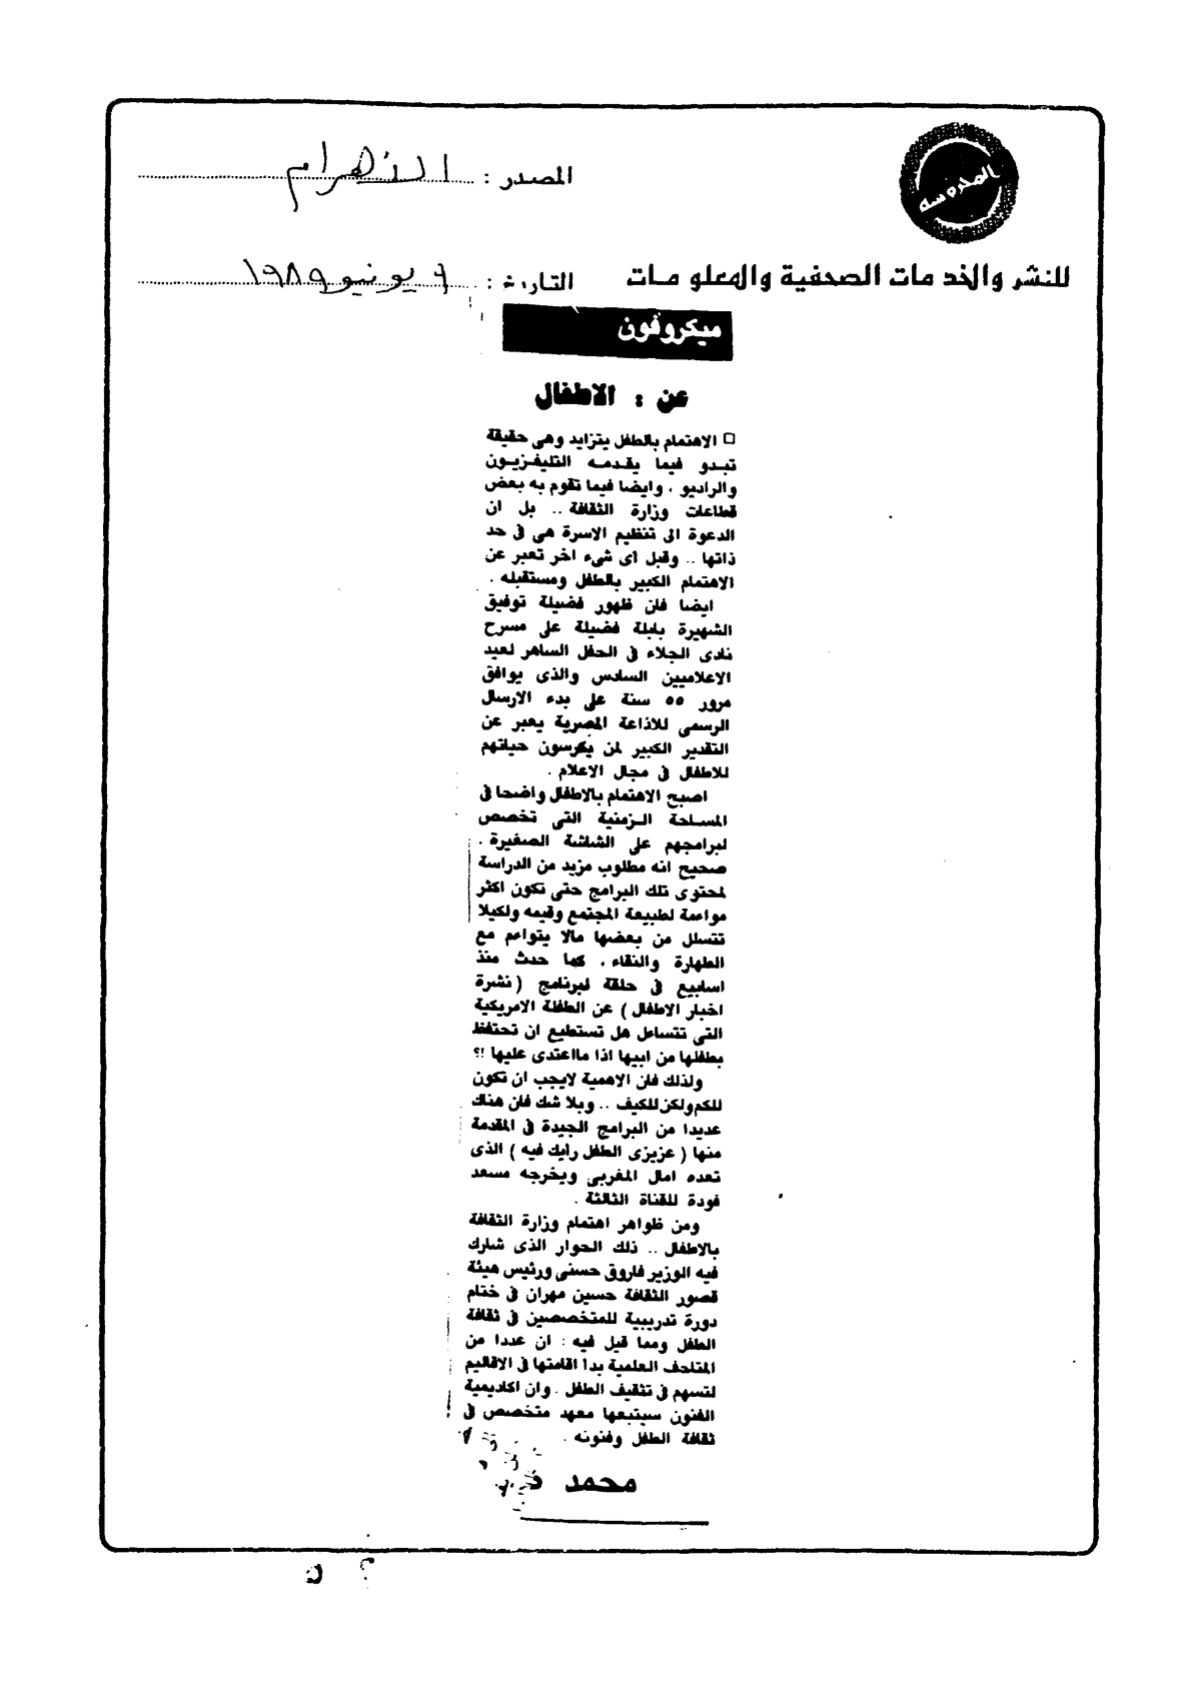 المحروسه
المصدر : الاهرام
للنشر والخدمات الصحفية والمعلومات
التاريخ : ٦ يونيو ١٩٨٩
ميكروفون
عن : الاطفال
□ الاهتمام بالطفل يتزايد وهى حقيقة
تبدو فيما يقدمه التليفزيون
والراديو ، وايضا فيما تقوم به بعض
قطاعات وزارة الثقافة .. بل ان
الدعوة الى تنظيم الاسرة هى فى حد
ذاتها .. وقبل اى شىء اخر تعبر عن
الاهتمام الكبير بالطفل ومستقبله .
ايضا فان ظهور فضيلة توفيق
الشهيرة بابلة فضيلة على مسرح
نادى الجلاء فى الحفل الساهر لعيد
الاعلاميين السادس والذى يوافق
مرور ٥٥ سنة على بدء الارسال
الرسمى للاذاعة المصرية يعبر عن
التقدير الكبير لمن يكرسون حياتهم
للاطفال فى مجال الاعلام .
اصبح الاهتمام بالاطفال واضحا فى
المساحة الزمنية التى تخصص
لبرامجهم على الشاشة الصغيرة .
صحيح انه مطلوب مزيد من الدراسة
لمحتوى تلك البرامج حتى تكون اكثر
مواءمة لطبيعة المجتمع وقيمه ولكيلا
تتسلل من بعضها مالا يتواءم مع
الطهارة والنقاء ، كما حدث منذ
اسابيع فى حلقة لبرنامج ( نشرة
اخبار الاطفال ) عن الطفلة الامريكية
التى تتساءل هل تستطيع ان تحتفظ
بطفلها من ابيها اذا مااعتدى عليها ؟!
ولذلك فان الاهمية لايجب ان تكون
للكم ولكن للكيف .. وبلا شك فان هناك
عديدا من البرامج الجيدة فى المقدمة
منها ( عزيزى الطفل رايك فيه ) الذى
تعده امال المغربى ويخرجه مسعد
فودة للقناة الثالثة .
ومن ظواهر اهتمام وزارة الثقافة
بالاطفال .. ذلك الحوار الذى شارك
فيه الوزير فاروق حسنى ورئيس هيئة
قصور الثقافة حسين مهران فى ختام
دورة تدريبية للمتخصصين فى ثقافة
الطفل ومما قيل فيه : ان عددا من
المتاحف العلمية بدا اقامتها فى الاقاليم
لتسهم فى تثقيف الطفل . وان اكاديمية
الفنون سيتبعها معهد متخصص فى
ثقافة الطفل وفنونه .
محمد